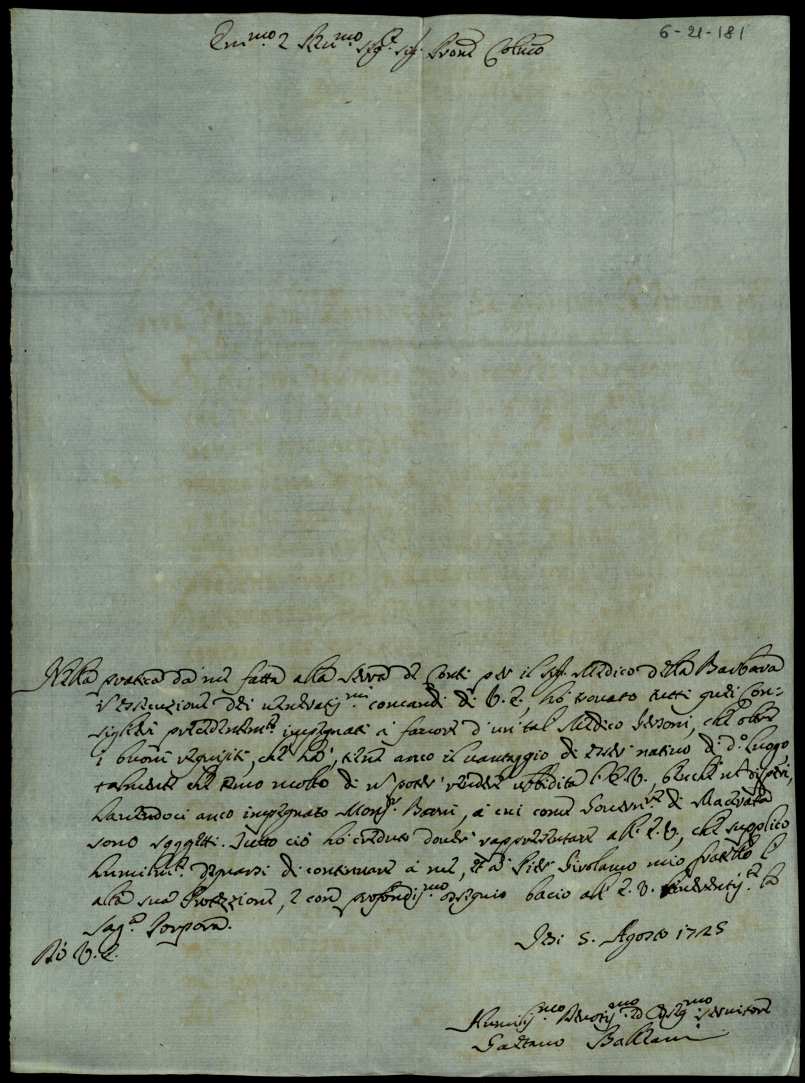 6-21-181
Em.mo e Re.mo Sig.r Sig.r Pron Col.mo
Nella pratica da me fatta alla Serra de Conti per il Sig. Medico della Barbara
l'essecuzione dei veneratiss.mi comandi di V. E., hò trovato tutti quei Con-
siglieri precedentem.te impegnati à favore d'un tal Medico che oltre
i buoni requisiti, che hà, tiene anco il vantaggio di esser nativo di d.o luogo
talmente che temo molto di n poter render ubbidita l'E.V., benche ne disperi,
havendoci anco impegnato Mons.r à cui come Govern.re di Macerata
sono soggetti. Tutto ciò hò creduto dover rappresentare all'E.V., che supplico
humilm.te degnarsi di continuare à me, et à Pier Girolamo mio fratello l'
alta sua Protezzione, e con profondiss.mo ossequio bacio all'E.V. riverentiss.te la
Sag.a Porpora.
Di V. E.
Jesi 5. Agosto 1725
Humiliss.mo Devotiss.mo ed Obblig.mo Servitore
Gaetano Baldani